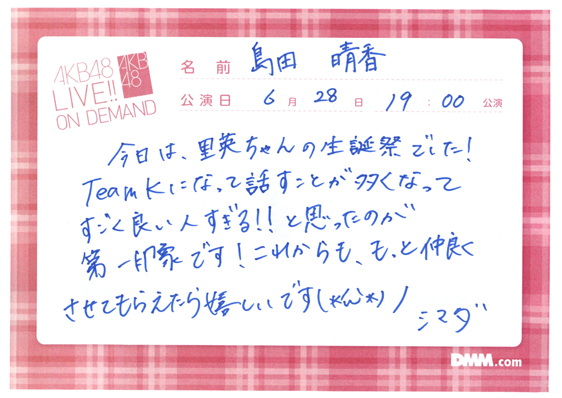 AKB48
LIVE!!
ON DEMAND
AKB
48
名前 島田 晴香
公演日 6月28日 19:00 公演
今日は、里英ちゃんの生誕祭でした!
Team Kになって話すことが多くなって
すごく良い人すぎる!!と思ったのが
第一印象です!これからも、もっと仲良く
させてもらえたら嬉しいです(*^^*)ノ
シマダ
DMM.com